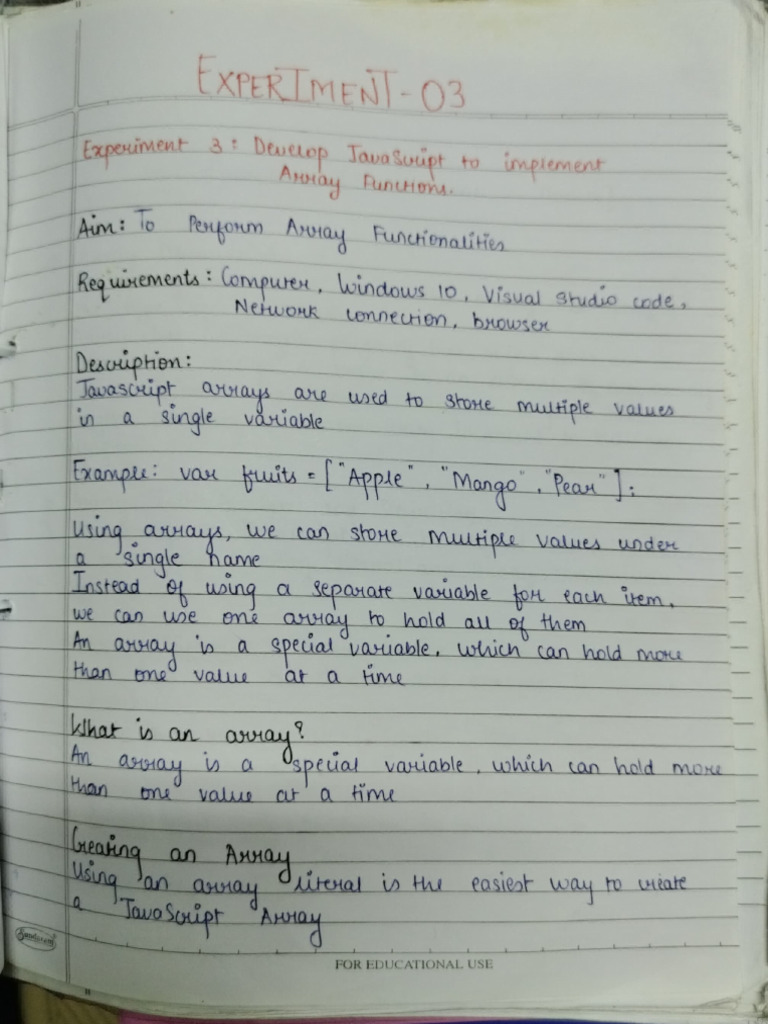 EXPERIMENT-03
Experiment 3: Develop JavaScript to implement
Array Functions.
Aim: To Perform Array Functionalities
Requirements: Computer, Windows 10, Visual Studio code,
Network connection, browser
Description:
Javascript arrays are used to store multiple values
in a single variable
Example: var fruits = ["Apple", "Mango", "Pear"];
Using arrays, we can store multiple values under
a single name
Instead of using a separate variable for each item,
we can use one array to hold all of them
An array is a special variable, which can hold more
than one value at a time
What is an array?
An array is a special variable, which can hold more
than one value at a time
Creating an Array
Using an array literal is the easiest way to create
a JavaScript Array
Sundaram
FOR EDUCATIONAL USE